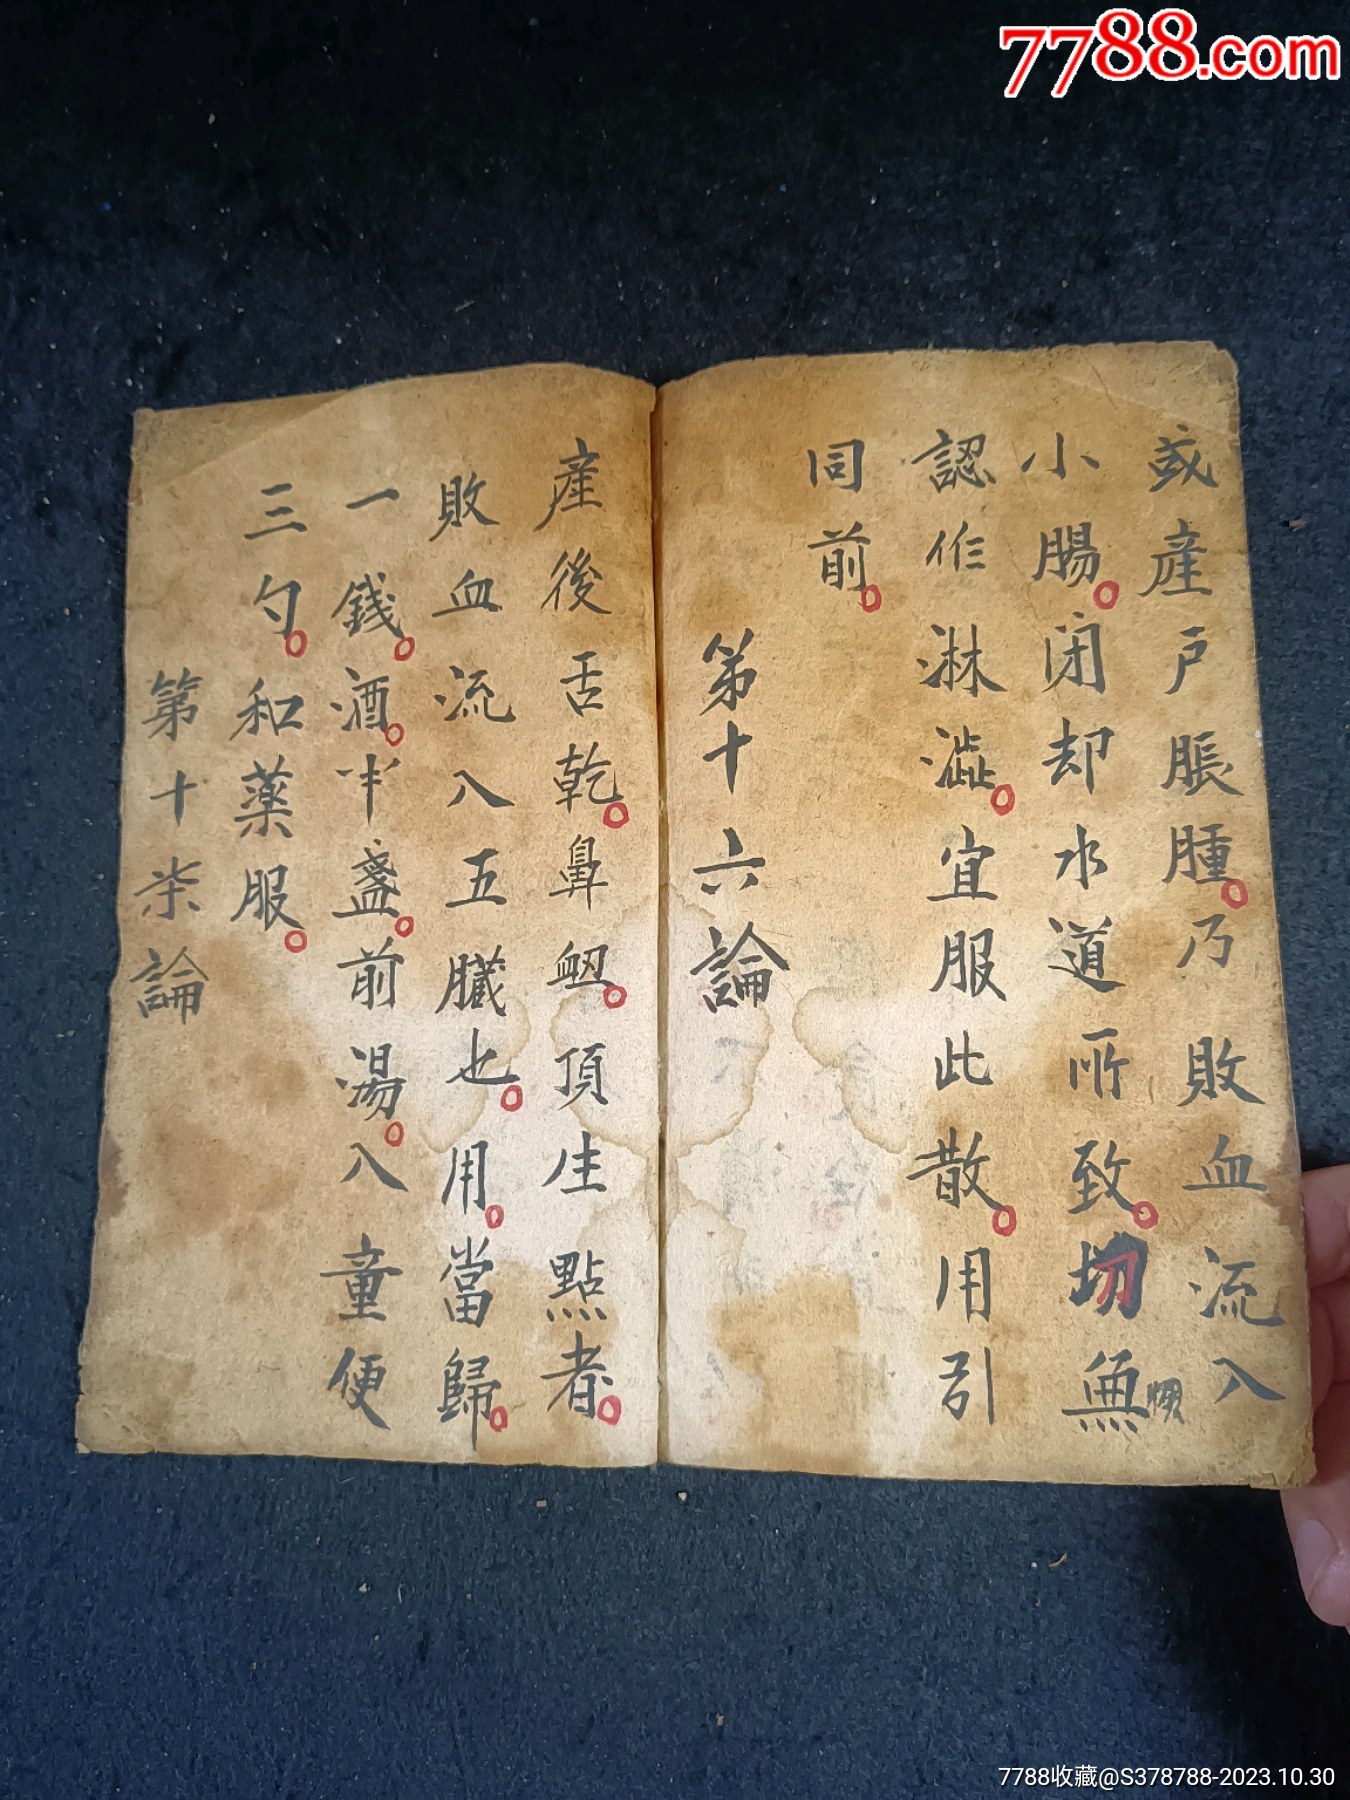 7788.com
或產户脹腫乃敗血流入
小腸闭却水道所致切無
認作淋澁宜服此散用引
同前
第十六論
產後舌乾鼻衄頂生點者
敗血流入五臟也用當歸
一錢酒半盞前湯入童便
三勺和薬服
第十柒論
7788收藏@S378788-2023.10.30